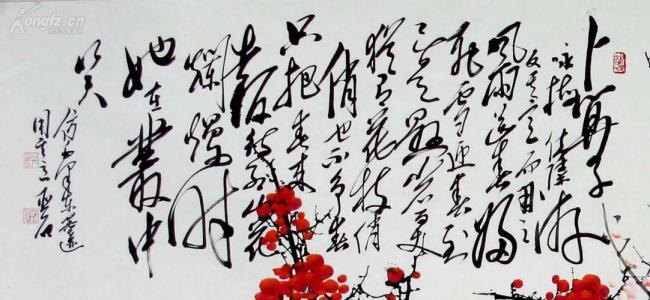 卜算子
咏梅 读陆游
反其意而用之
风雨送春归
飞雪迎春到
已是悬崖百丈冰
犹有花枝俏
俏也不争春
只把春来
报待到山花
烂漫时
她在叢中
笑
仿毛泽东
Kongfz.cn